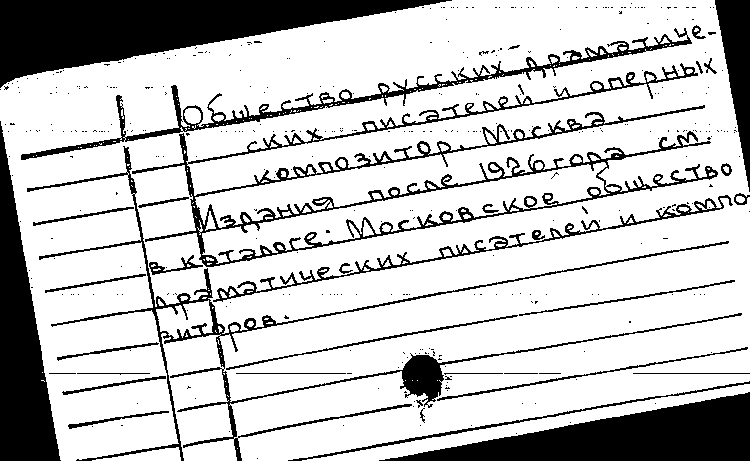 Общество русских драматиче-
ских писателей и оперных
композитор. Москва.
Издания после 1926 года см.
в каталоге: Московское общество
драматических писателей и компо-
зиторов.